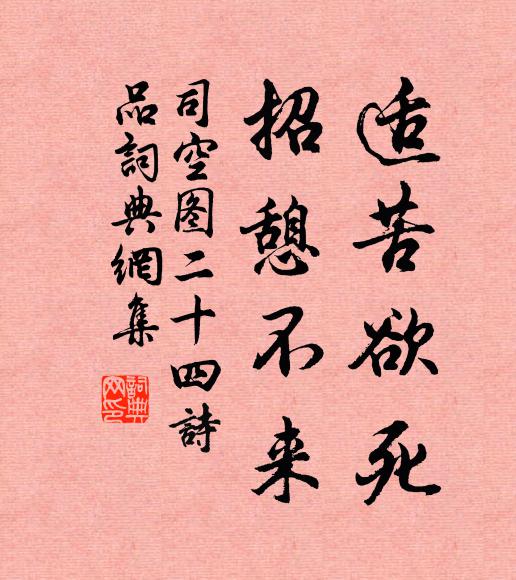 适苦欲死
招憩不来
司空图二十四詩
品詞典網集
詞典网印